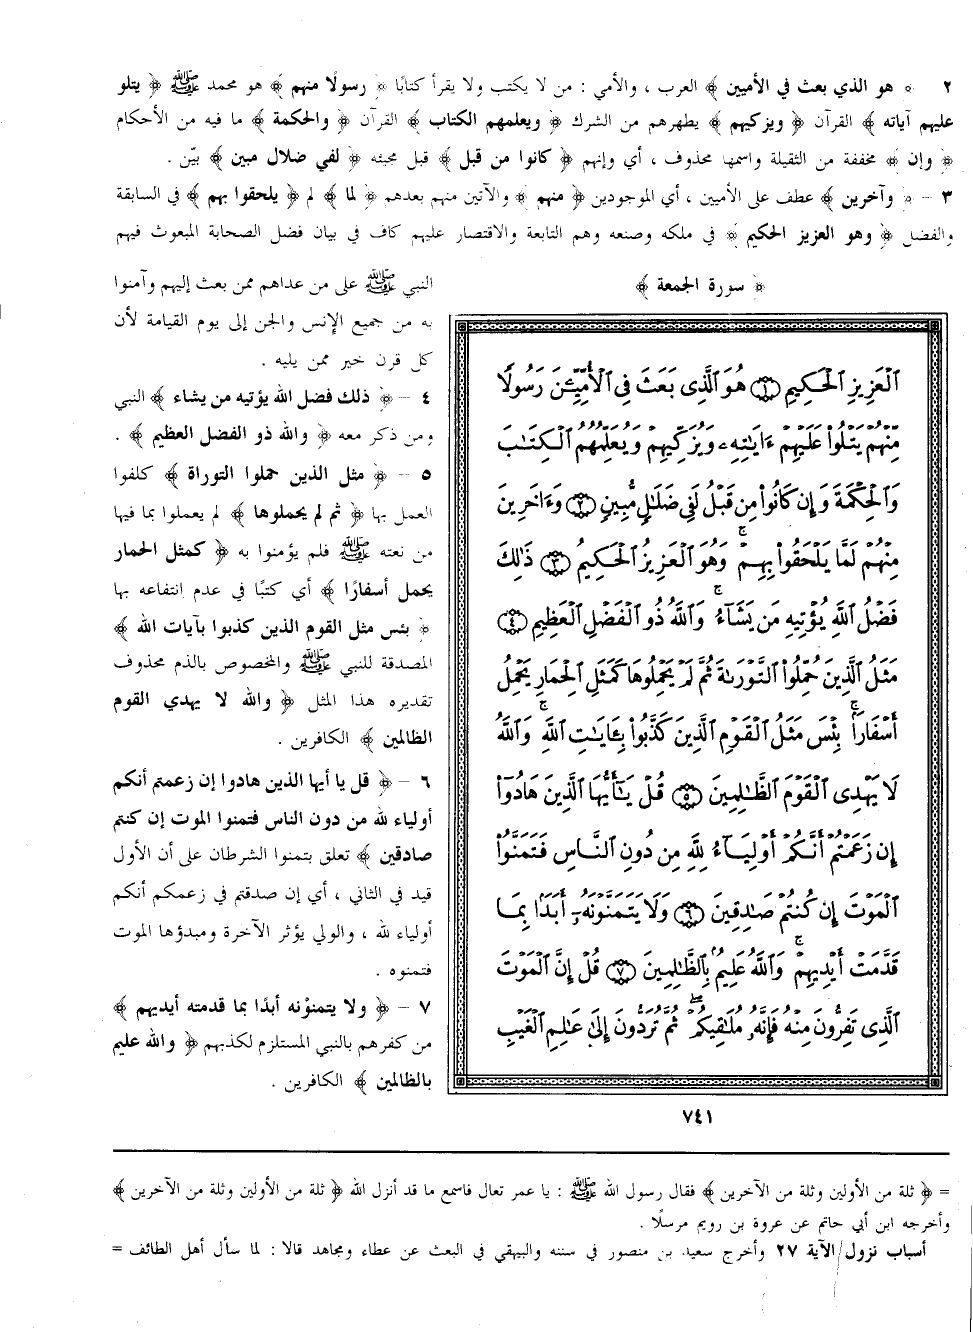 ٢ ﴿ هو الذي بعث في الأميين ﴾ العرب ، والأمي : من لا يكتب ولا يقرأ كتابًا ﴿ رسولًا منهم ﴾ هو محمد ﷺ ﴿ يتلو
عليهم آياته ﴾ القرآن ﴿ ويزكيهم ﴾ يطهرهم من الشرك ﴿ ويعلمهم الكتاب ﴾ القرآن ﴿ والحكمة ﴾ ما فيه من الأحكام
﴿ وإن ﴾ مخففة من الثقيلة واسمها محذوف ، أي وإنهم ﴿ كانوا من قبل ﴾ قبل مجيئه ﴿ لفي ضلال مبين ﴾ بيّن .
٣ – ﴿ وآخرين ﴾ عطف على الأميين ، أي الموجودين ﴿ منهم ﴾ والآتين منهم بعدهم ﴿ لما ﴾ لم ﴿ يلحقوا بهم ﴾ في السابقة
والفضل ﴿ وهو العزيز الحكيم ﴾ في ملكه وصنعه وهم التابعة والاقتصار عليهم كاف في بيان فضل الصحابة المبعوث فيهم
النبي ﷺ على من عداهم ممن بعث إليهم وآمنوا
به من جميع الإنس والجن إلى يوم القيامة لأن
كل قرن خير ممن يليه .
٤ – ﴿ ذلك فضل الله يؤتيه من يشاء ﴾ النبي
ومن ذكر معه ﴿ والله ذو الفضل العظيم ﴾ .
٥ – ﴿ مثل الذين حملوا التوراة ﴾ كلفوا
العمل بها ﴿ ثم لم يحملوها ﴾ لم يعملوا بما فيها
من نعته ﷺ فلم يؤمنوا به ﴿ كمثل الحمار
يحمل أسفارًا ﴾ أي كتبًا في عدم انتفاعه بها
﴿ بئس مثل القوم الذين كذبوا بآيات الله ﴾
المصدقة للنبي ﷺ والمخصوص بالذم محذوف
تقديره هذا المثل ﴿ والله لا يهدي القوم
الظالمين ﴾ الكافرين .
٦ – ﴿ قل يا أيها الذين هادوا إن زعمتم أنكم
أولياء لله من دون الناس فتمنوا الموت إن كنتم
صادقين ﴾ تعلق بتمنوا الشرطان على أن الأول
قيد في الثاني ، أي إن صدقتم في زعمكم أنكم
أولياء لله ، والولي يؤثر الآخرة ومبدؤها الموت
فتمنوه .
٧ – ﴿ ولا يتمنوْنه أبدًا بما قدمته أيديهم ﴾
من كفرهم بالنبي المستلزم لكذبهم ﴿ والله عليم
بالظالمين ﴾ الكافرين .
﴿ سورة الجمعة ﴾
ٱلْعَزِيزِ ٱلْحَكِيمِ ﴿١﴾ هُوَ ٱلَّذِى بَعَثَ فِى ٱلْأُمِّيِّـۧنَ رَسُولًا
مِّنْهُمْ يَتْلُوا۟ عَلَيْهِمْ ءَايَـٰتِهِۦ وَيُزَكِّيهِمْ وَيُعَلِّمُهُمُ ٱلْكِتَـٰبَ
وَٱلْحِكْمَةَ وَإِن كَانُوا۟ مِن قَبْلُ لَفِى ضَلَـٰلٍ مُّبِينٍ ﴿٢﴾ وَءَاخَرِينَ
مِنْهُمْ لَمَّا يَلْحَقُوا۟ بِهِمْ ۚ وَهُوَ ٱلْعَزِيزُ ٱلْحَكِيمُ ﴿٣﴾ ذَٰلِكَ
فَضْلُ ٱللَّهِ يُؤْتِيهِ مَن يَشَآءُ ۚ وَٱللَّهُ ذُو ٱلْفَضْلِ ٱلْعَظِيمِ ﴿٤﴾
مَثَلُ ٱلَّذِينَ حُمِّلُوا۟ ٱلتَّوْرَىٰةَ ثُمَّ لَمْ يَحْمِلُوهَا كَمَثَلِ ٱلْحِمَارِ يَحْمِلُ
أَسْفَارًۢا ۚ بِئْسَ مَثَلُ ٱلْقَوْمِ ٱلَّذِينَ كَذَّبُوا۟ بِـَٔايَـٰتِ ٱللَّهِ ۚ وَٱللَّهُ
لَا يَهْدِى ٱلْقَوْمَ ٱلظَّـٰلِمِينَ ﴿٥﴾ قُلْ يَـٰٓأَيُّهَا ٱلَّذِينَ هَادُوٓا۟
إِن زَعَمْتُمْ أَنَّكُمْ أَوْلِيَآءُ لِلَّهِ مِن دُونِ ٱلنَّاسِ فَتَمَنَّوُا۟
ٱلْمَوْتَ إِن كُنتُمْ صَـٰدِقِينَ ﴿٦﴾ وَلَا يَتَمَنَّوْنَهُۥٓ أَبَدًۢا بِمَا
قَدَّمَتْ أَيْدِيهِمْ ۚ وَٱللَّهُ عَلِيمٌۢ بِٱلظَّـٰلِمِينَ ﴿٧﴾ قُلْ إِنَّ ٱلْمَوْتَ
ٱلَّذِى تَفِرُّونَ مِنْهُ فَإِنَّهُۥ مُلَـٰقِيكُمْ ۖ ثُمَّ تُرَدُّونَ إِلَىٰ عَـٰلِمِ ٱلْغَيْبِ
٧٤١
= ﴿ ثلة من الأولين وثلة من الآخرين ﴾ فقال رسول الله ﷺ : يا عمر تعال فاسمع ما قد أنزل الله ﴿ ثلة من الأولين وثلة من الآخرين ﴾
وأخرجه ابن أبي حاتم عن عروة بن رويم مرسلًا .
أسباب نزول الآية ٢٧ وأخرج سعيد بن منصور في سننه والبيهقي في البعث عن عطاء ومجاهد قالا : لما سأل أهل الطائف =